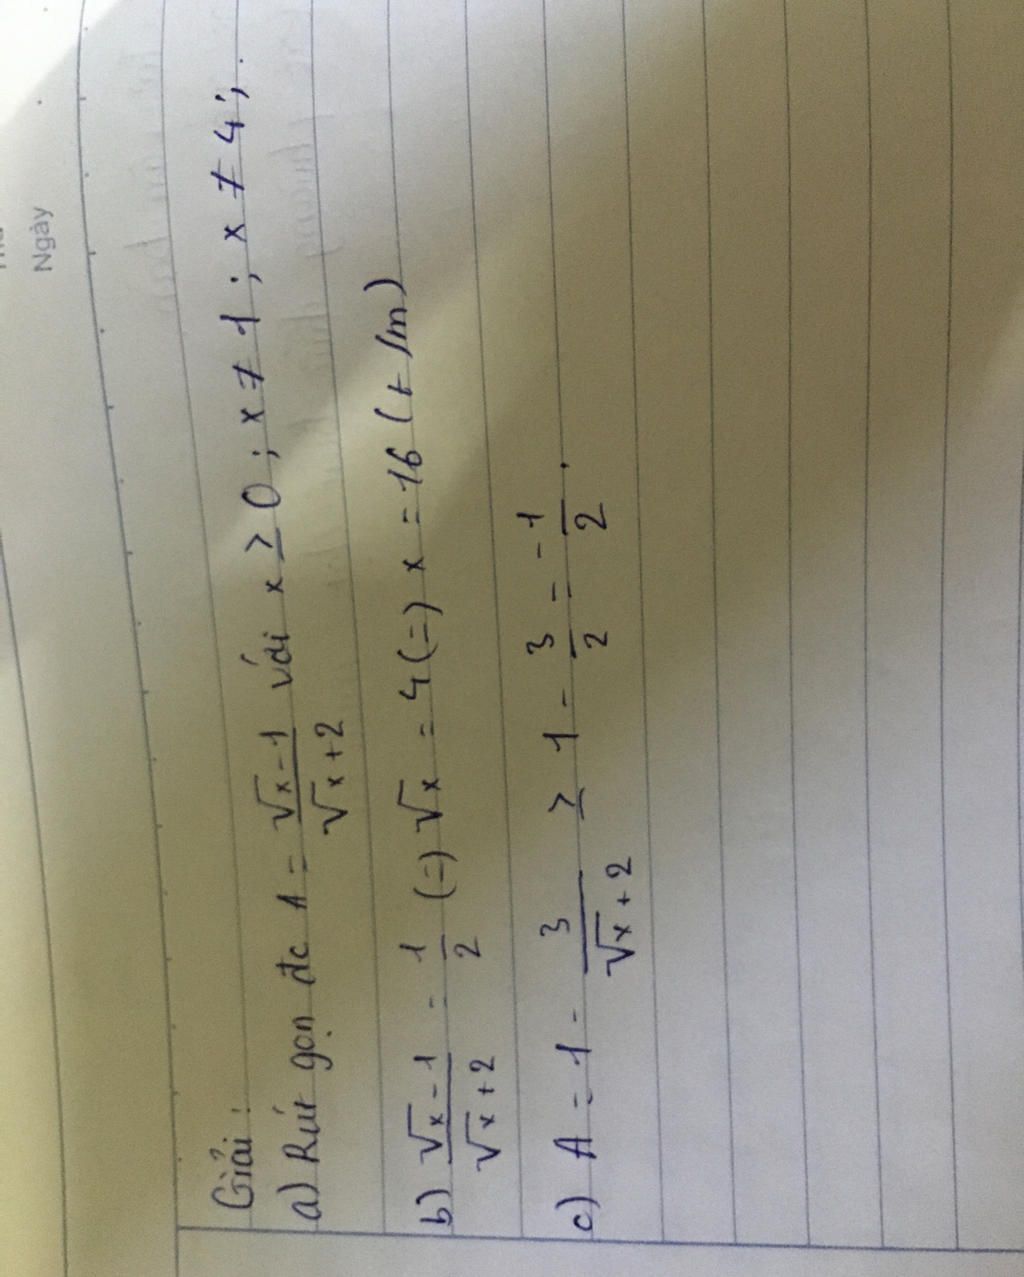 Ngày
Giải:
a) Rút gọn đc A = (√x - 1)/(√x + 2) với x ≥ 0; x ≠ 1; x ≠ 4;.
b) (√x - 1)/(√x + 2) = 1/2 (=) √x = 4 (=) x = 16 (t/m)
c) A = 1 - 3/(√x + 2) ≥ 1 - 3/2 = -1/2.